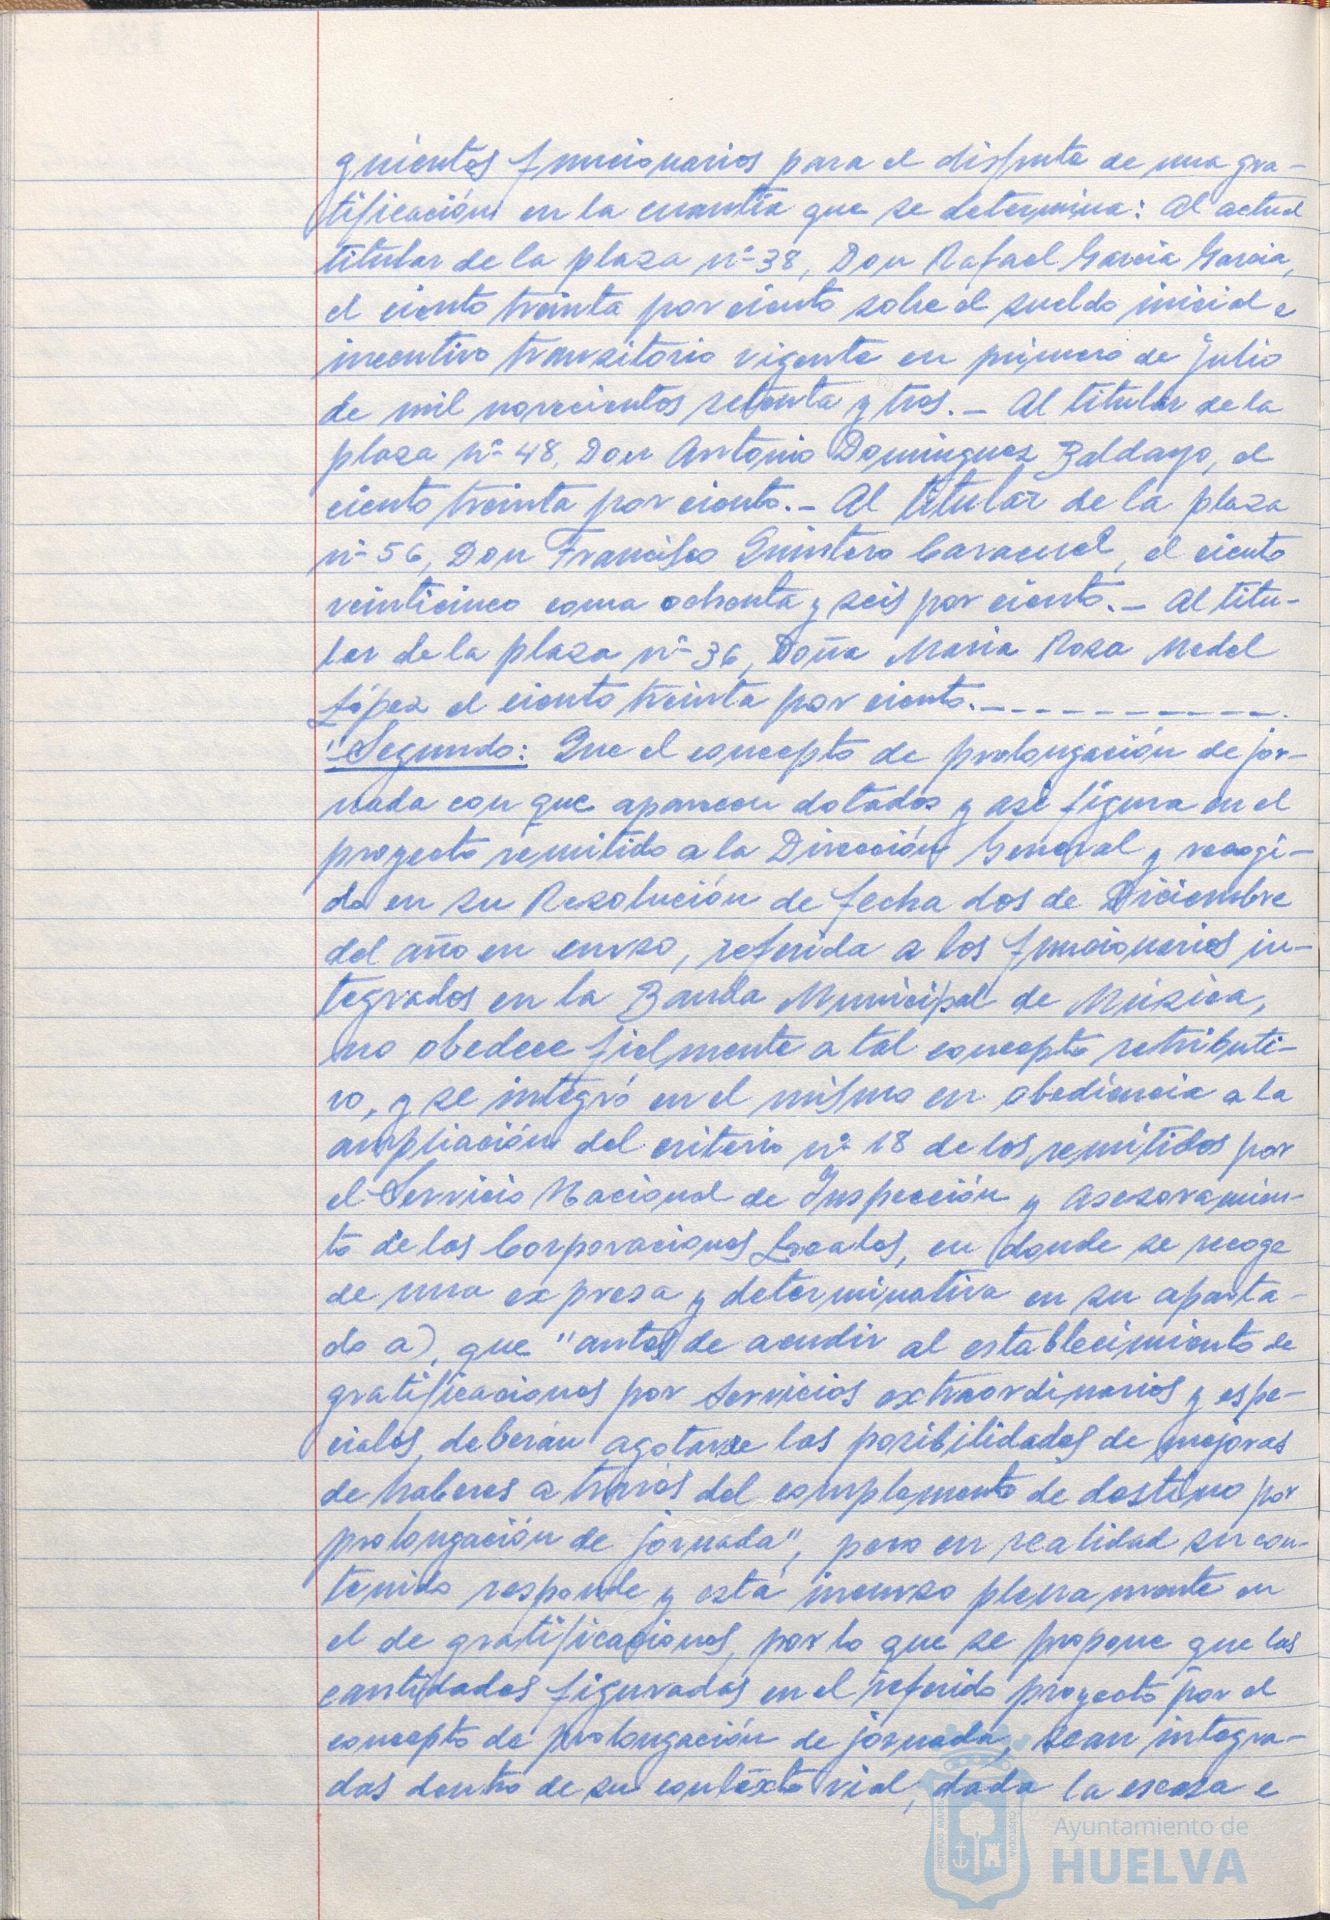 guientes funcionarios para el disfrute de una gra-
tificación en la cuantía que se determina: Al actual
titular de la plaza nº 38, Don Rafael García García,
el ciento treinta por ciento sobre el sueldo inicial e
incentivo transitorio vigente en primero de Julio
de mil novecientos setenta y tres.- Al titular de la
plaza nº 48, Don Antonio Dominguez Baldayo, el
ciento treinta por ciento.- Al titular de la plaza
nº 56, Don Francisco Quintero Caracuel, el ciento
veinticinco coma ochenta y seis por ciento.- Al titu-
lar de la plaza nº 36, Doña Maria Rosa Medel
López el ciento treinta por ciento.-----------.
"Segundo: Que el concepto de prolongación de jor-
nada con que aparecen dotados y así figura en el
proyecto remitido a la Dirección General y recogi-
do en su Resolución de fecha dos de Diciembre
del año en curso, referida a los funcionarios in-
tegrados en la Banda Municipal de Música,
no obedece fielmente a tal concepto retributi-
vo, y se integró en el mismo en obediencia a la
ampliación del criterio nº 18 de los remitidos por
el Servicio Nacional de Inspección y Asesoramien-
to de las Corporaciones Locales, en donde se recoge
de una expresa y determinativa en su aparta-
do a), que "antes de acudir al establecimiento de
gratificaciones por servicios extraordinarios y espe-
ciales, deberán agotarse las posibilidades de mejoras
de haberes a través del complemento de destino por
prolongación de jornada", pero en realidad su con-
tenido responde y está incurso plenamente en
el de gratificaciones, por lo que se propone que las
cantidades figuradas en el referido proyecto por el
concepto de prolongación de jornada, sean integra-
das dentro de su contexto vial, dada la escasa e
Ayuntamiento de
HUELVA